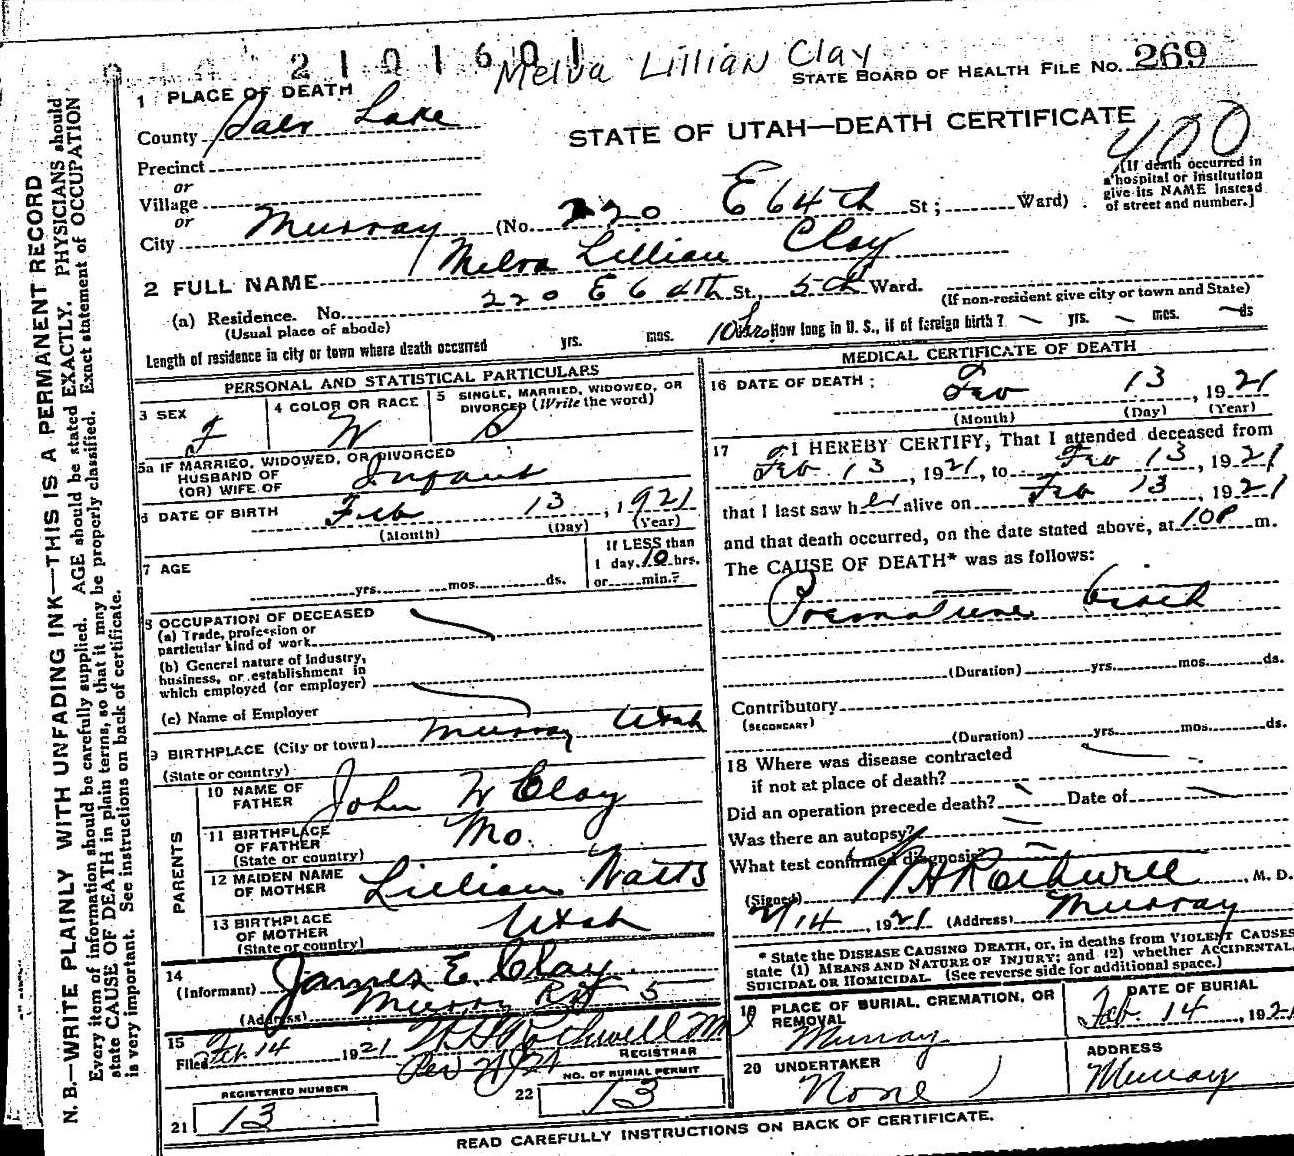 2101601
Melva Lillian Clay
STATE BOARD OF HEALTH FILE NO. 269
1 PLACE OF DEATH
County Lake
STATE OF UTAH—DEATH CERTIFICATE
400
Precinct
or
Village
or
City Murray (No. 220 E 64th St; Ward)
[If death occurred in
a hospital or institution
give its NAME instead
of street and number.]
2 FULL NAME Melva Lillian Clay
(a) Residence. No. 220 E 64th St., 5th Ward.
(Usual place of abode)
(If non-resident give city or town and State)
Length of residence in city or town where death occurred yrs. mos. 10 hrs. How long in U. S., if of foreign birth? — yrs. — mos. — ds
PERSONAL AND STATISTICAL PARTICULARS
3 SEX F
4 COLOR OR RACE W
5 SINGLE, MARRIED, WIDOWED, OR DIVORCED (Write the word) S
5a IF MARRIED, WIDOWED, OR DIVORCED
HUSBAND OF
(OR) WIFE OF Infant
6 DATE OF BIRTH Feb 13, 1921
(Month) (Day) (Year)
7 AGE yrs. mos. ds.
If LESS than
1 day, 10 hrs.
or min.?
8 OCCUPATION OF DECEASED
(a) Trade, profession or
particular kind of work
(b) General nature of industry,
business, or establishment in
which employed (or employer)
(c) Name of Employer
9 BIRTHPLACE (City or town) Murray Utah
(State or country)
PARENTS
10 NAME OF
FATHER John W Clay
11 BIRTHPLACE
OF FATHER Mo.
(State or country)
12 MAIDEN NAME
OF MOTHER Lillian Watts
13 BIRTHPLACE
OF MOTHER Utah
(State or country)
14
(Informant) James E. Clay
(Address) Murray 5
15
Filed Feb. 14 1921 Rothwell
REGISTRAR
Per
REGISTERED NUMBER
21 13
22 NO. OF BURIAL PERMIT
13
MEDICAL CERTIFICATE OF DEATH
16 DATE OF DEATH: Feb 13, 1921
(Month) (Day) (Year)
17 I HEREBY CERTIFY, That I attended deceased from
Feb 13, 1921, to Feb 13, 1921
that I last saw her alive on Feb 13, 1921
and that death occurred, on the date stated above, at 10P m.
The CAUSE OF DEATH* was as follows:
Premature birth
(Duration) yrs. mos. ds.
Contributory
(SECONDARY)
(Duration) yrs. mos. ds.
18 Where was disease contracted
if not at place of death?
Did an operation precede death? Date of
Was there an autopsy?
What test confirmed diagnosis?
(Signed) Rothwell, M. D.
2/14, 1921 (Address) Murray
* State the DISEASE CAUSING DEATH, or, in deaths from VIOLENT CAUSES
state (1) MEANS AND NATURE OF INJURY; and (2) whether ACCIDENTAL,
SUICIDAL OR HOMICIDAL. (See reverse side for additional space.)
19 PLACE OF BURIAL, CREMATION, OR
REMOVAL
Murray
DATE OF BURIAL
Feb. 14, 192
20 UNDERTAKER
None
ADDRESS
Murray
READ CAREFULLY INSTRUCTIONS ON BACK OF CERTIFICATE.
N. B.—WRITE PLAINLY WITH UNFADING INK—THIS IS A PERMANENT RECORD
Every item of information should be carefully supplied. AGE should be stated EXACTLY. PHYSICIANS should
state CAUSE OF DEATH in plain terms, so that it may be properly classified. Exact statement of OCCUPATION
is very important. See instructions on back of certificate.